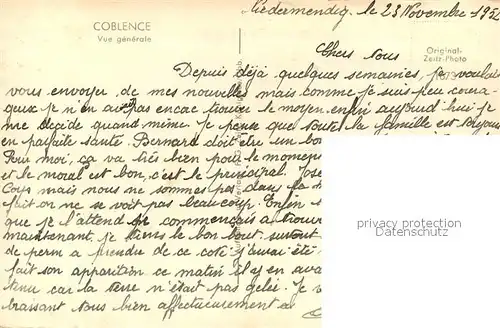 Niedermendig, le 23 Novembre 195
COBLENCE
Vue générale
Original-
Zeitz-Photo
Chers tous
Depuis déjà quelques semaines, je voulais
vous envoyer de mes nouvelles mais comme je suis peu coura-
geux je n'en avais pas encore trouvé le moyen enfin aujourd'hui je
me décide quand même. Je pense que toute la famille est toujours
en parfaite santé. Bernard doit être un bon
Pour moi, ça va très bien pour le moment
et le moral est bon, c'est le principal.
mais nous ne sommes pas dans la
fait on ne se voit pas beaucoup. Enfin
que je l'attend je commençais a trouver
maintenant je tiens le bon bout surtout
de perm a prendre de ce coté j'aurai été
fait son apparition ce matin il y en avait
tenu car la terre n'était pas gelée. Je v
brassant tous bien affectueusement
privacy protection
www.ak-ansichtskarten.de